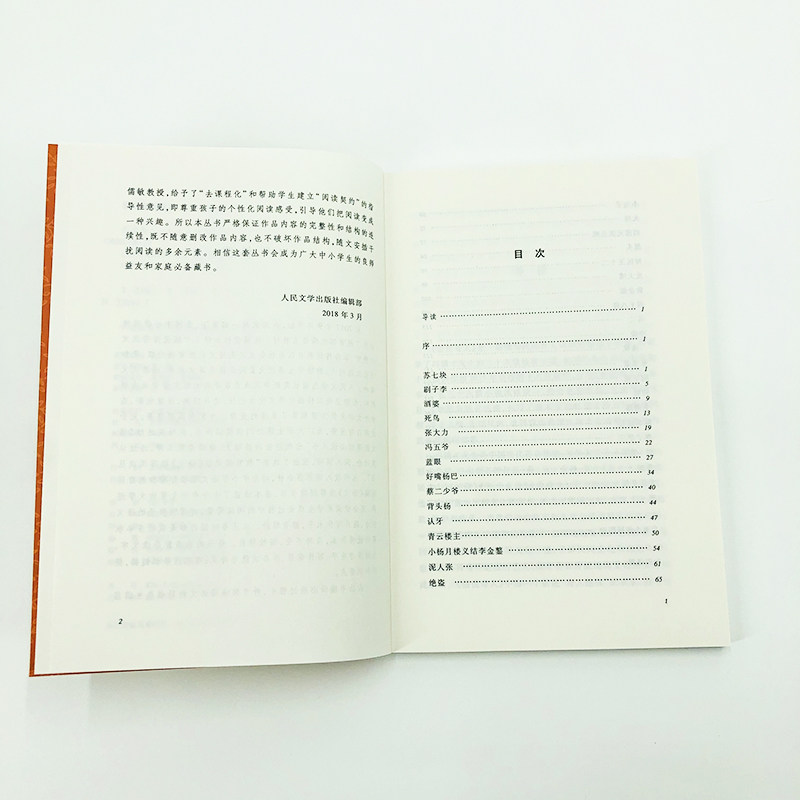 儒敏教授,给予了“去课程化”和帮助学生建立“阅读契约”的指
导性意见,即尊重孩子的个性化阅读感受,引导他们把阅读变成
一种兴趣。所以本丛书严格保证作品内容的完整性和结构的连
续性,既不随意删改作品内容,也不破坏作品结构,随文安插干
扰阅读的多余元素。相信这套丛书会成为广大中小学生的良师
益友和家庭必备藏书。
人民文学出版社编辑部
2018 年 3 月
2
目 次
导读 1
序 1
苏七块 1
刷子李 5
酒婆 9
死鸟 13
张大力 19
冯五爷 22
蓝眼 27
好嘴杨巴 34
蔡二少爷 40
背头杨 44
认牙 47
青云楼主 50
小杨月楼义结李金鏊 54
泥人张 61
绝盗 65
1